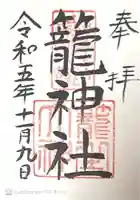 奉拝
籠神社
令和五年十月九日